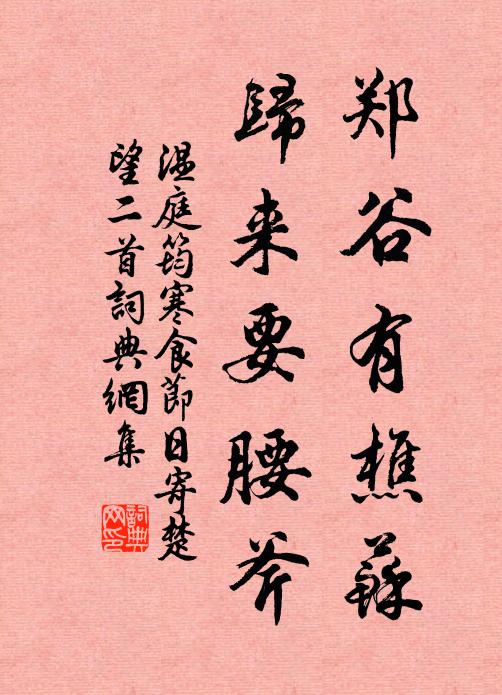 郑谷有樵蘇
歸来要腰斧
温庭筠寒食節日寄楚
望二首詞典網集
詞典網印